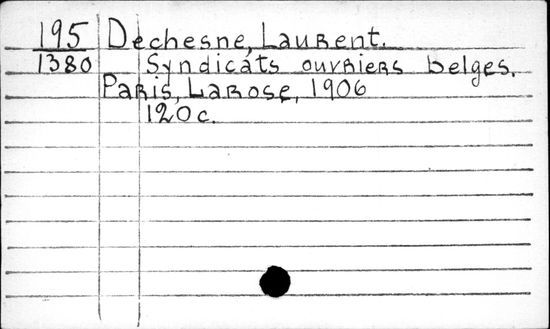 195 Dechesne, Laurent.
1380 Syndicats ouvriers belges.
Paris, Larose, 1906
120 c.